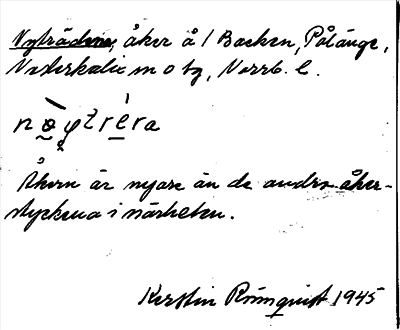 Nyträdena, åker å / Backen, Pålänge,
Nederkalix sn o tg, Norrb. l.
Åkern är nyare än de andra åker-
styckena i närheten.
Kerstin Rönnquist 1945